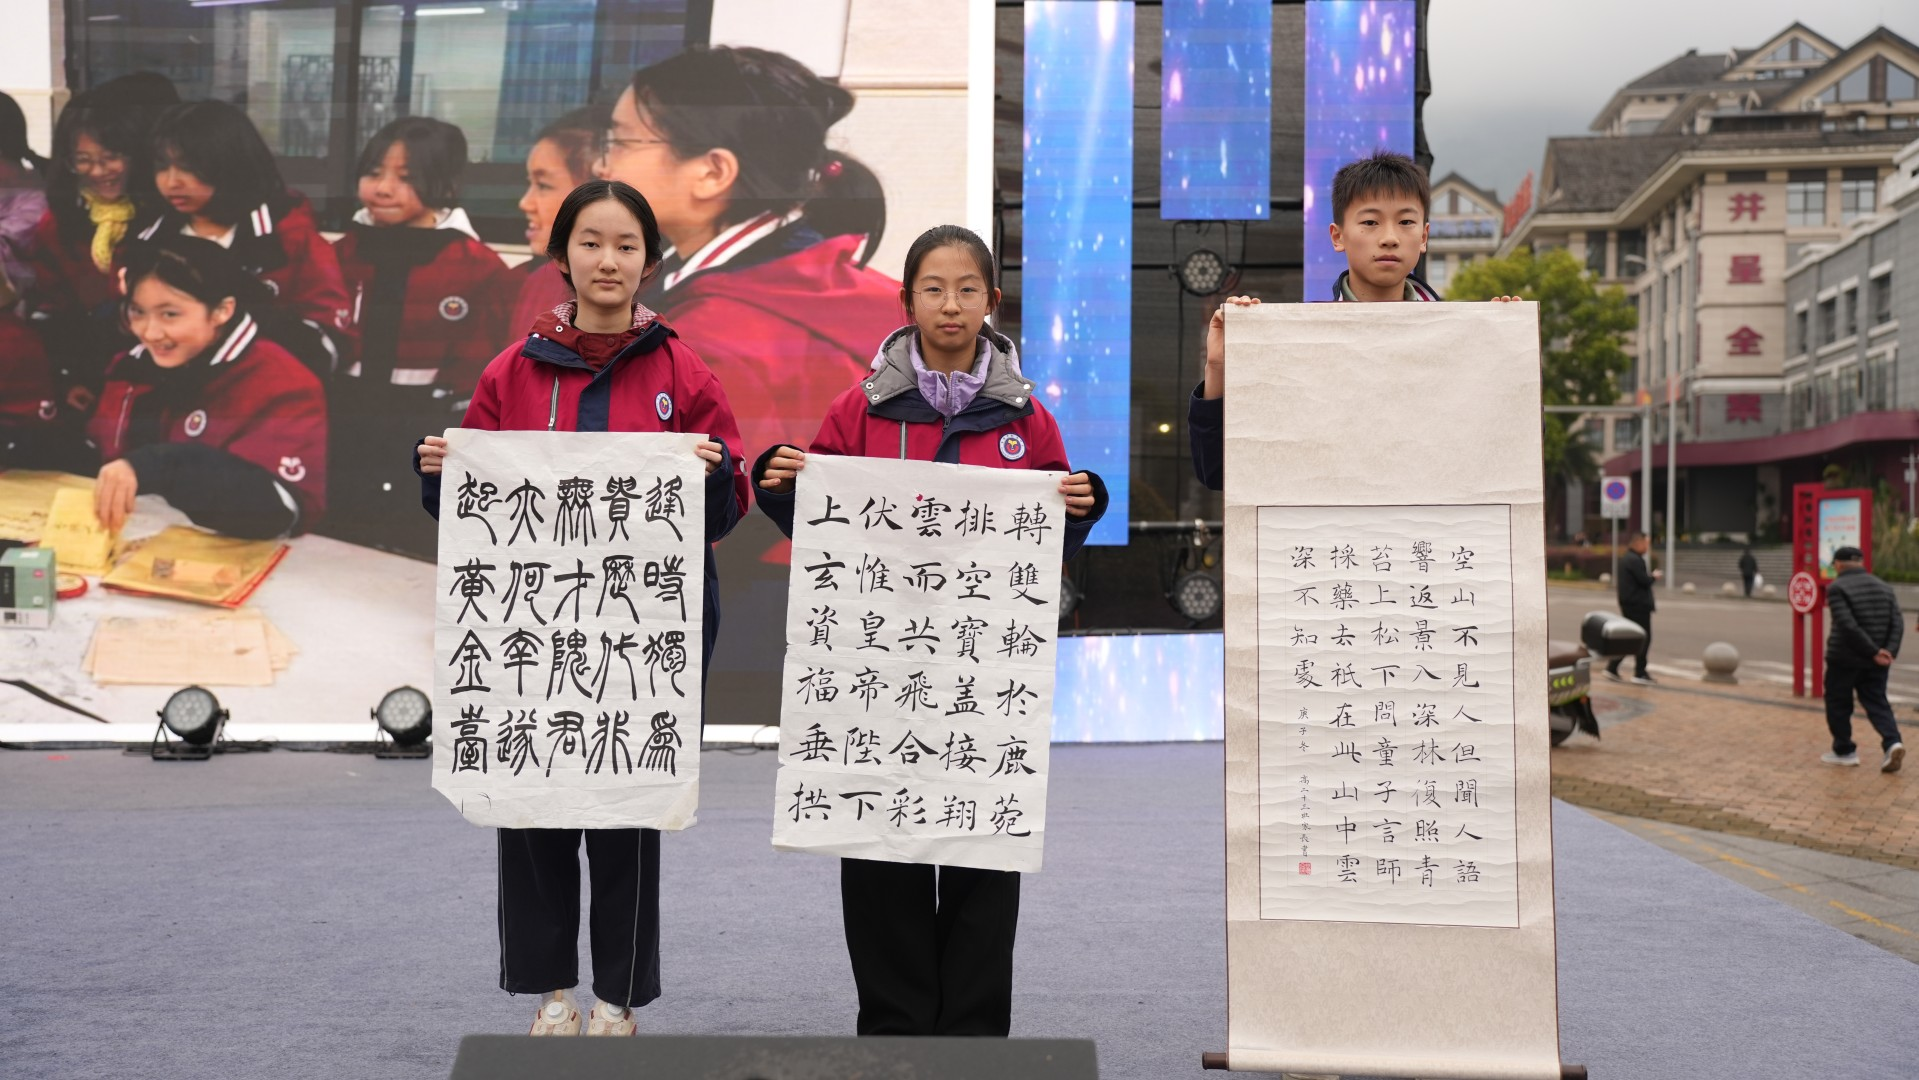 逢時獨爲
貴歷代非
無才隗君
亦何幸遂
起黃金臺
轉雙輪於鹿菀
排空寶盖接翔
雲而共飛合彩
伏惟皇帝陛下
上玄資福垂拱
空山不見人但聞人語
響返景入深林復照青
苔上松下問童子言師
採藥去祇在此山中雲
深不知處
庚子冬
井呈全